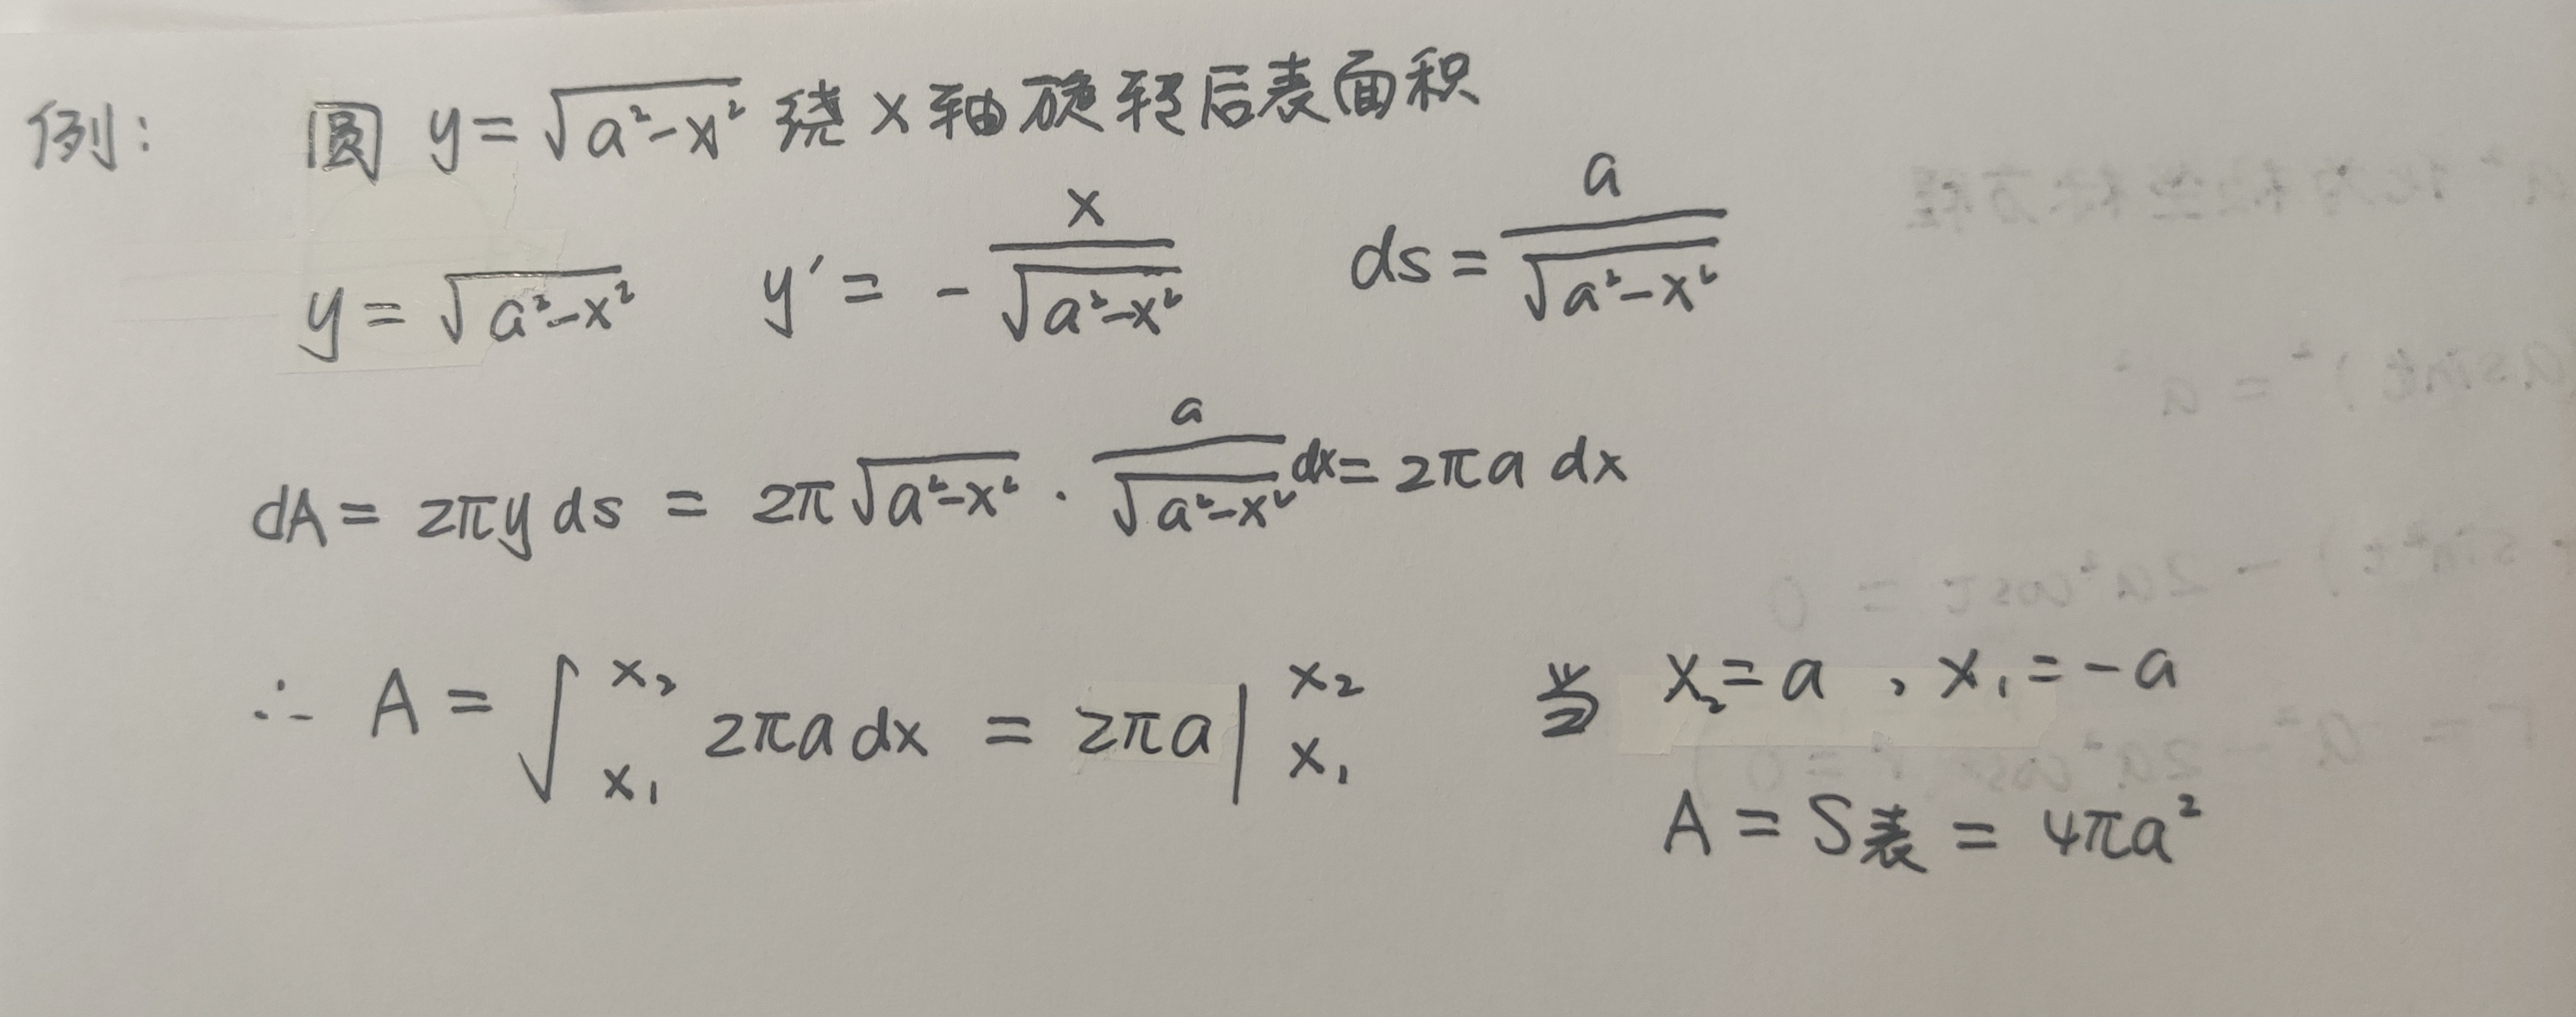 例: 圆 y=√(a²-x²) 绕x轴旋转后表面积
y=√(a²-x²) y′= -x/√(a²-x²) ds= a/√(a²-x²)
dA= 2πy ds = 2π√(a²-x²) · a/√(a²-x²) dx= 2πa dx
∴ A = ∫_{x₁}^{x₂} 2πa dx = 2πa |_{x₁}^{x₂} 当 x₂=a , x₁=-a
A = S表 = 4πa²